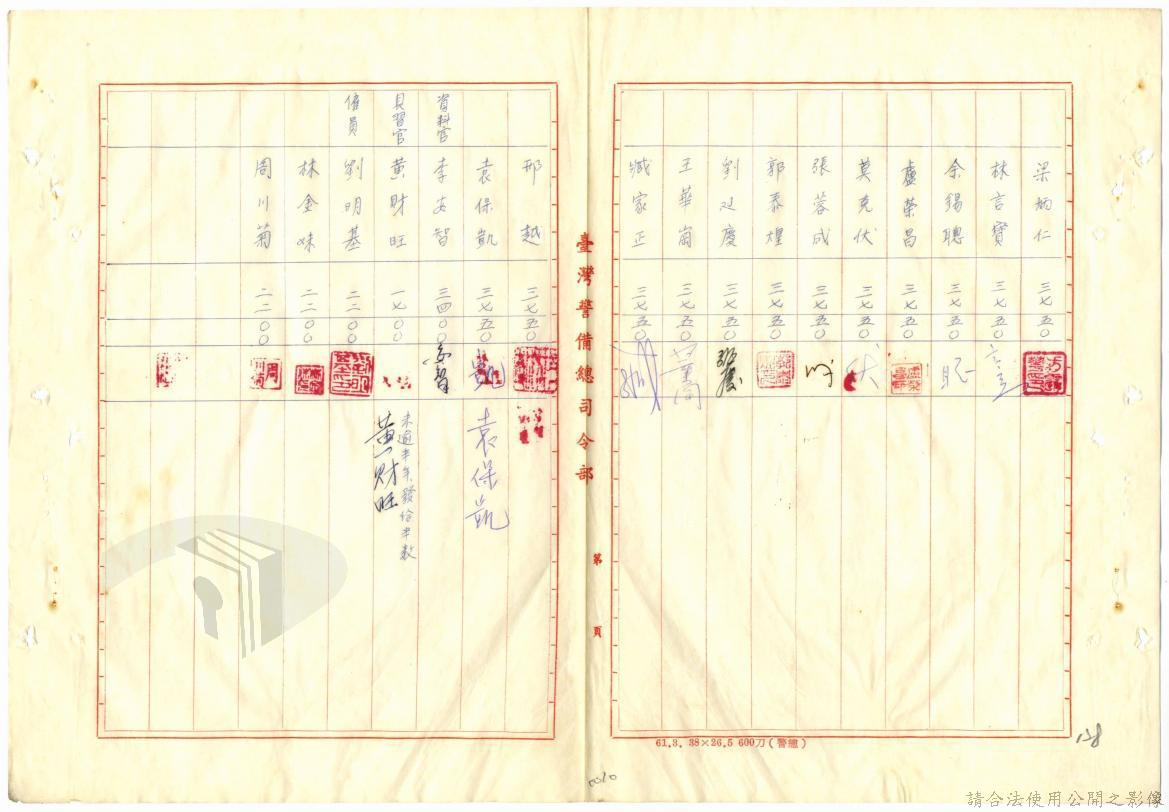 梁炳仁 三七五〇
林言寶 三七五〇
余錫聰 三七五〇 聰
盧榮昌 三七五〇
莫克伏 三七五〇 伏
張蓉成 三七五〇
郭泰煌 三七五〇
劉廷慶 三七五〇
王華崗 三七五〇
臧家正 三七五〇
臺灣警備總司令部
第 頁
邢越 三七五〇
袁保凱 三七五〇 凱 袁保凱
資料官 李安智 三四〇〇 安智
見習官 黃財旺 一七〇〇 未逾半年發給半數 黃財旺
僱員 劉明基 二二〇〇
林金味 二二〇〇
周川菊 二二〇〇
61.3. 38×26.5 600刀(警總)
128
請合法使用公開之影像